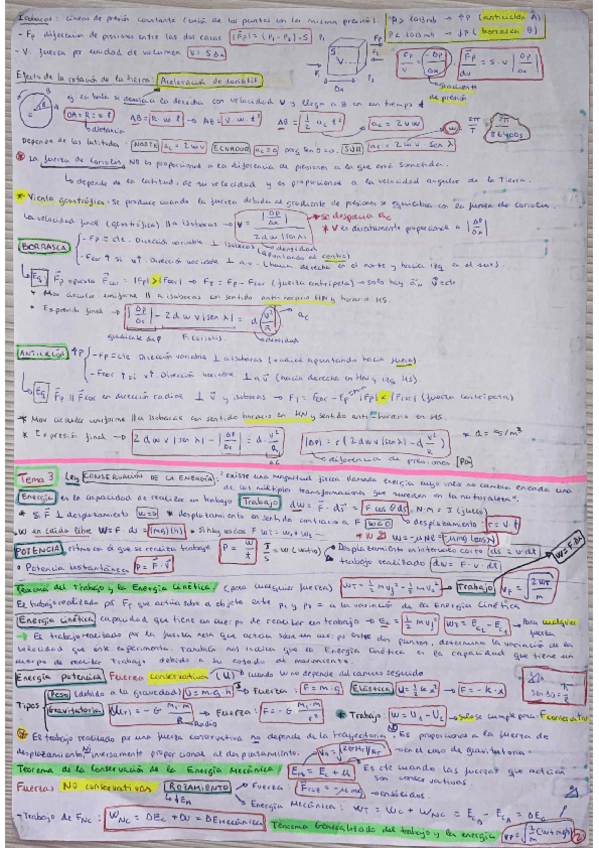 Isobaras: línea de presión constante (unión de los puntos con la misma presión)
P > 1013mb → ↑P (anticiclón A)
P < 1013mb → ↓P (borrasca B)
- Fp diferencia de presiones entre las dos caras |Fp| = (P₁ - P₂) · S
- V. fuerza por unidad de volumen V = S Δx
gradiente de presión
Efecto de la rotación de la tierra: Aceleración de coriolis
y la bala se desvía a la derecha con velocidad V y llega a B en un tiempo t
OA = R = v t
distancia
AB = R w t → AB = V w t²
AB = 1/2 ac t²
ac = 2 v w
w = 2π/T
2π/86400
Depende de las latitudes: NORTE ac = 2wv ECUADOR ac = 0 porq sen 0 = 0. SUR ac = 2wv sen λ
* La fuerza de coriolis, NO es proporcional a la diferencia de presiones a la que está sometida.
↳ depende de la latitud, de su velocidad y es proporcional a la velocidad angular de la Tierra.
* Viento geostrófico: se produce cuando la fuerza debida al gradiente de presiones se equilibra con la fuerza de coriolis.
La velocidad final (geostrófica) // a isobaras → V = |Δp/Δx| / 2dw|sen λ|
* se desprecia ac
* V es directamente proporcional a |Δp/Δx|
densidad
BORRASCA
- Fp = cte. Dirección variable ⊥ isobaras (apuntando al centro)
- Fcor ↑ si v↑. Dirección variable ⊥ a v. (hacia derecha en el norte y hacia izq en el sur).
↳ Eq Fp opuesta Fcor → |Fp| > |Fcor| → FT = Fp - Fcor (fuerza centrípeta) → solo hay an, v = cte
* Mov circular uniforme // a isobaras con sentido antihorario HN y horario HS.
* Expresión final → |Δp/Δx| - 2dwv|sen λ| = d v²/R → ac
gradiente de P
F. coriolis
densidad
ANTICICLÓN ↑P
- Fp = cte Dirección variable ⊥ a isobaras (radial apuntando hacia fuera).
- Fcor ↑ si v↑. Dirección variable ⊥ a v (hacia derecha en HN y izq HS).
↳ Eq Fp // Fcor en dirección radial ⊥ v y isobaras → FT = Fcor - Fp |Fp| < |Fcor| (fuerza centrípeta)
* Mov circular uniforme // a isobaras con sentido horario en HN y sentido anti-horario en HS.
* Expresión final → 2dwv|sen λ| - |Δp/Δx| = d · v²/R
* d = kg/m³
ac
diferencia de presiones [Pa]
Tema 3 Ley CONSERVACIÓN DE LA ENERGÍA: "existe una magnitud física llamada energía cuyo valor no cambia en cada una
de las múltiples transformaciones que suceden en la naturaleza".
Energía es la capacidad de realizar un trabajo Trabajo dW = F · dr = F cos θ ds, N·m = J (julio)
* Si F ⊥ desplazamiento W = 0 * desplazamiento en sentido contrario a F W < 0 desplazamiento r = v · t
W en caída libre W = F · dy = (mg)(h) * Si hay varias F WT = W₁ + W₂ ...
POTENCIA ritmo con el que se realiza trabajo P = W/t J/s = W (vatio) Desplazamiento en intervalo corto ds = v · dt
• Potencia instantánea P = F · v
trabajo realizado dW = F · v · dt
W = F · Δx
Teorema del Trabajo y la Energía Cinética: (para cualquier fuerza) WT = 1/2 m vf² - 1/2 m v₀² → Trabajo
El trabajo realizado por Fp que actúa sobre a objeto entre P₁ y P₂ = a la variación de la Energía Cinética
Energía Cinética capacidad que tiene un cuerpo de realizar un trabajo → Ec = 1/2 m v² WT = Ec₂ - Ec₁ → Para cualquier fuerza
→ El trabajo realizado por la fuerza neta que actúa sobre un cuerpo entre dos puntos, determina la variación de la
velocidad que éste experimenta. También nos indica que la Energía Cinética es la capacidad que tiene un
cuerpo de realizar Trabajo debido a su estado de movimiento.
Energía potencial Fuerza conservativa (U) cuando W no depende del camino seguido
Tipos
Peso (debido a la gravedad) U = m·g·h → Fuerza: F = m·g Elástica U = 1/2 k x² → F = -k·x
Gravitatoria → Fuerza: * Trabajo: W = U₁ - U₂ → solo se cumple para F conservativa
Radio
* El trabajo realizado por una fuerza conservativa no depende de la trayectoria. Es proporcional a la fuerza de
desplazamiento, inversamente proporcional al desplazamiento. → en el caso de gravitatoria
Teorema de la Conservación de la Energía Mecánica: Em = Ec + U → Es cte cuando las fuerzas que actúan
son conservativas
Fuerzas NO conservativas ROZAMIENTO Fuerza
Energía Mecánica: WT = WC + WNC = Ec₂ - Ec₁ = ΔEc
- Trabajo de FNC: WNC = ΔEc + ΔU = ΔE mecánica Teorema Generalizado del trabajo y la energía
2